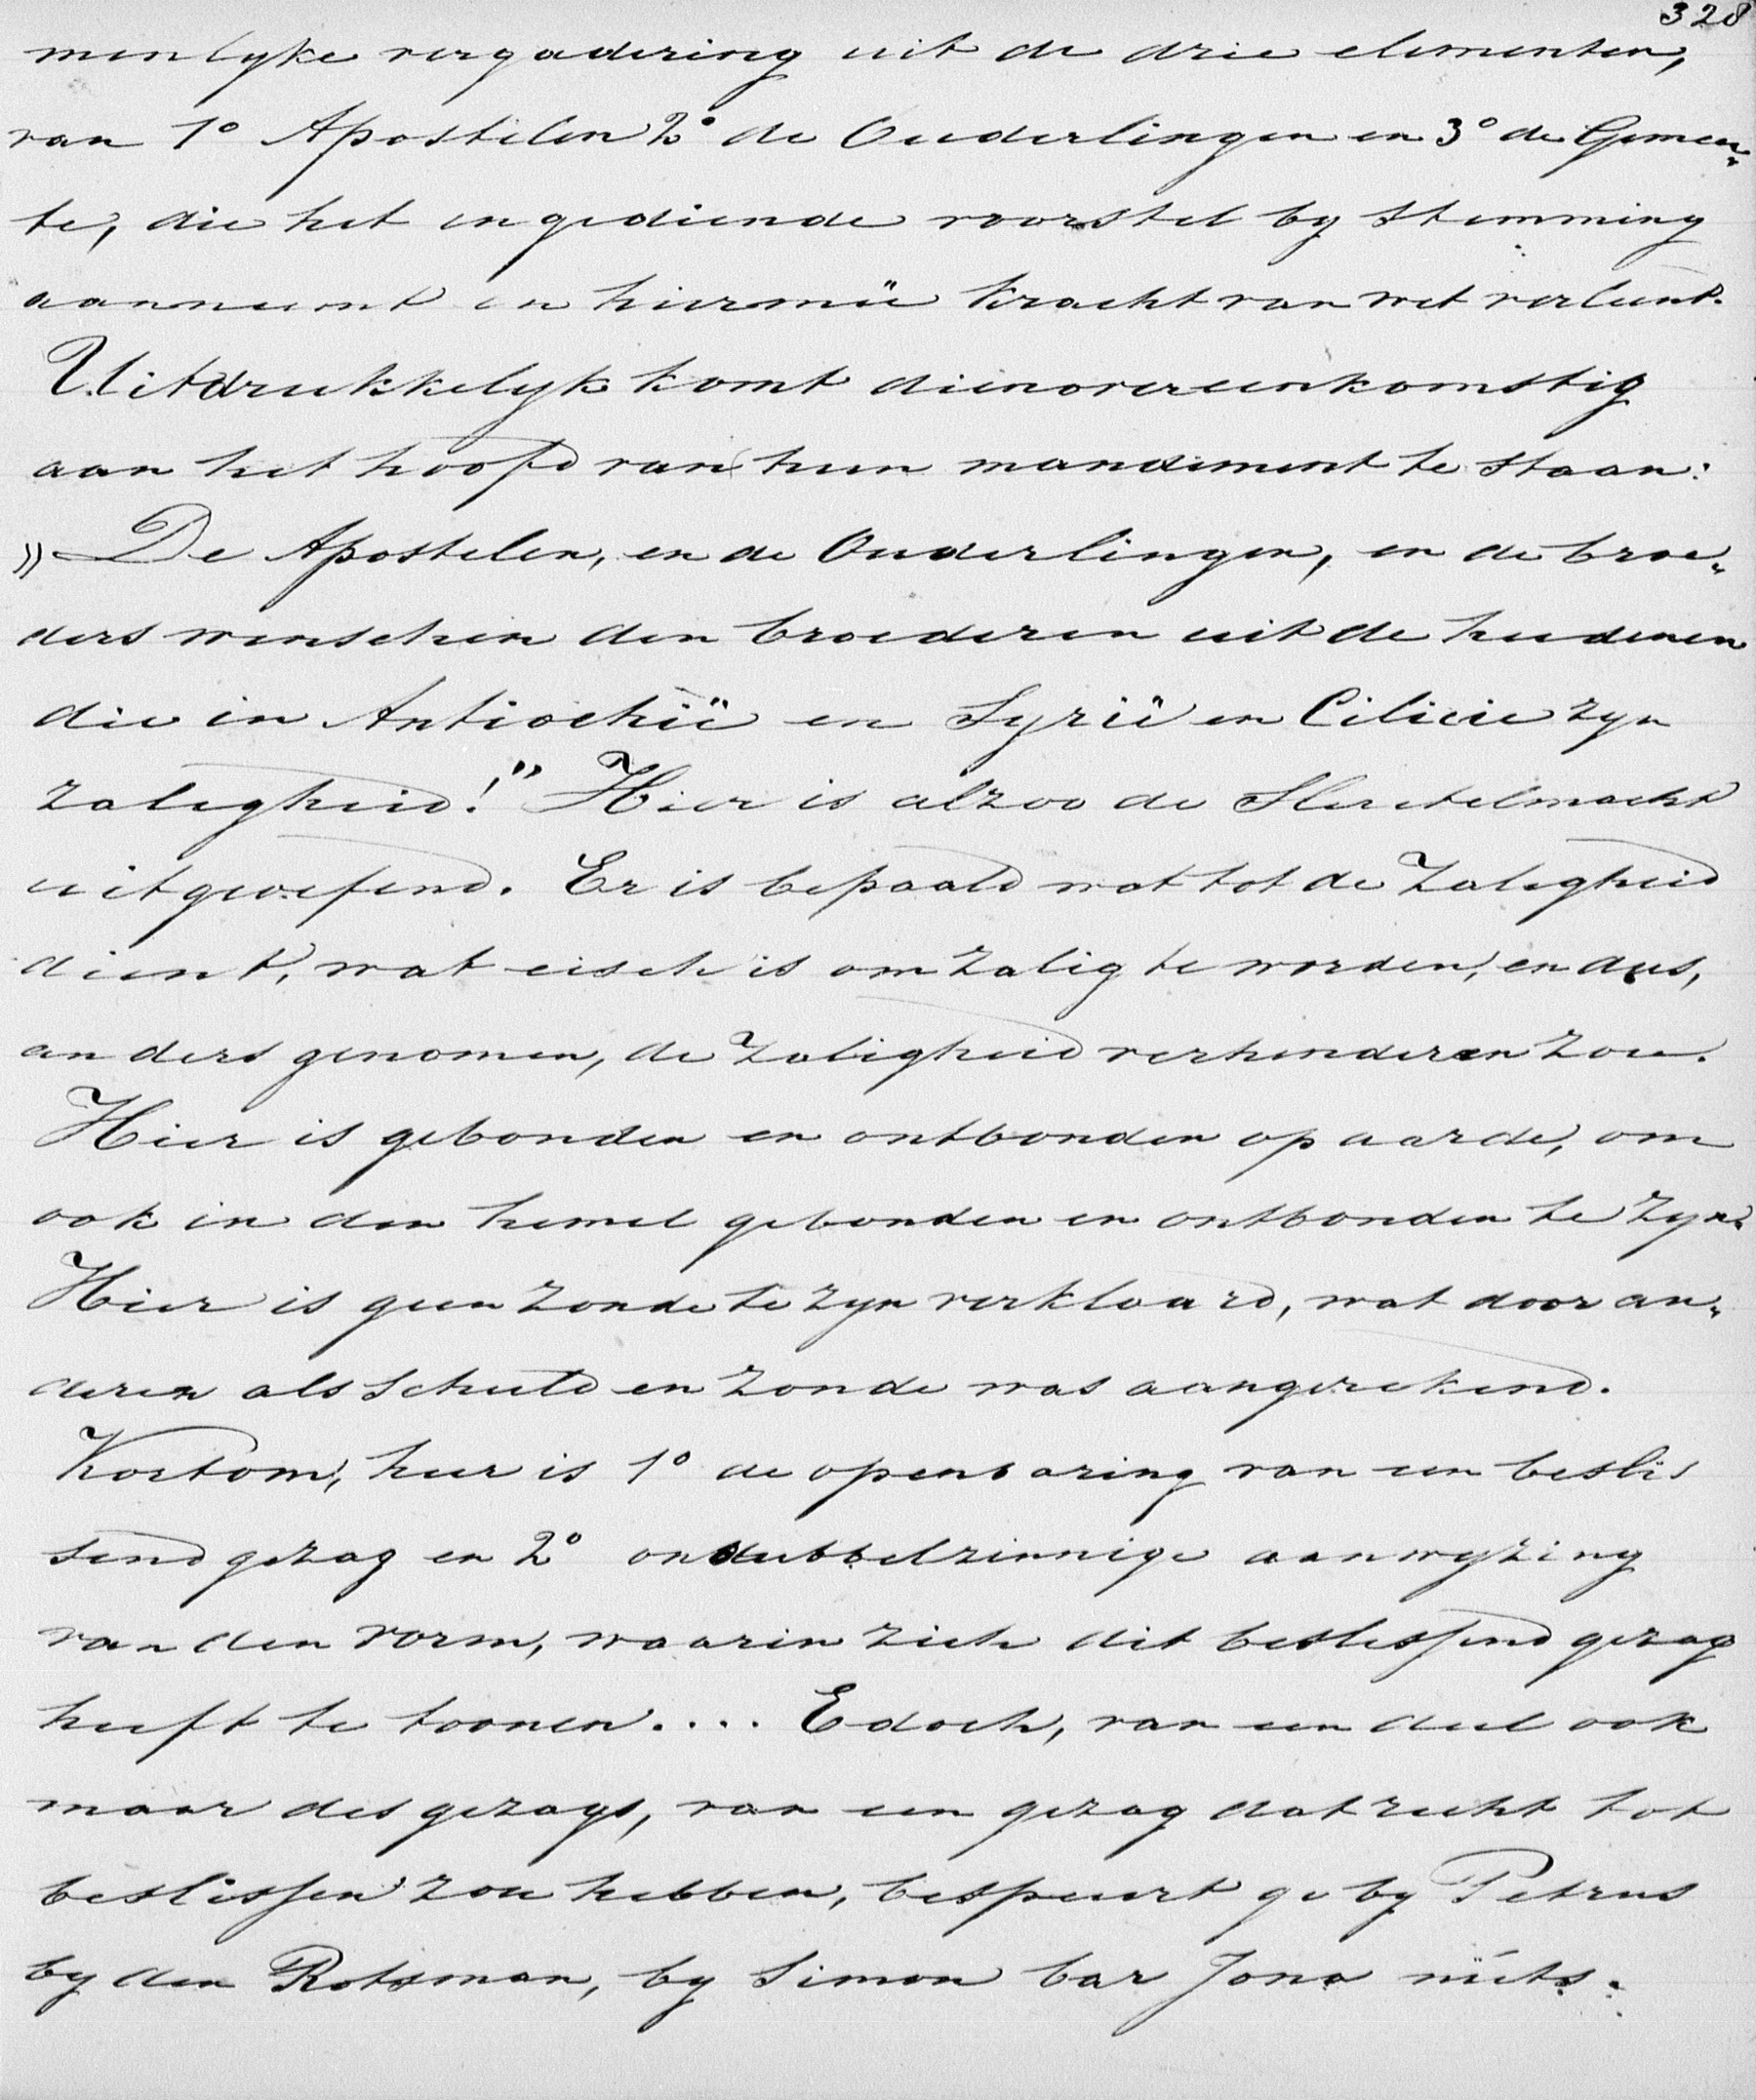 328
menlyke vergadering uit de drie elementen,
van 1° Apostelen 2° de Ouderlingen en 3° de Gemeen„
te, die het ingediende voorstel by stemming
aanneemt en hiermeê kracht van wet verleent.
Uitdrukkelyk komt dienovereenkomstig
aan het hoofd van hun mandement te staan:
„De Apostelen, en de Ouderlingen, en de broe„
ders wenschen den broederen uit de heidenen
die in Antiochië en Syrië en Cilicie zyn
zaligheid!” Hier is alzoo de Sleutelmacht
uitgeoefend. Er is bepaald wat tot de Zaligheid
dient, wat eisch is om zalig te worden, en dus,
anders genomen, de Zaligheid verhinderen zou.
Hier is gebonden en ontbonden op aarde, om
ook in den hemel gebonden en ontbonden te zyn.
Hier is geen zonde te zyn verklaard, wat door an„
deren als schuld en zonde was aangerekend.
Kortom, hier is 1° de openbaring van een beslis
send gezag en 2° ondubbelzinnige aanwyzing
van den vorm, waarin zich dit beslissend gezag
heeft te toonen.... Edoch, van een deel ook
maar des gezags, van een gezag dat recht tot
beslissen zou hebben, bespeurt ge by Petrus
by den Rotsman, by Simon bar Jona niets.